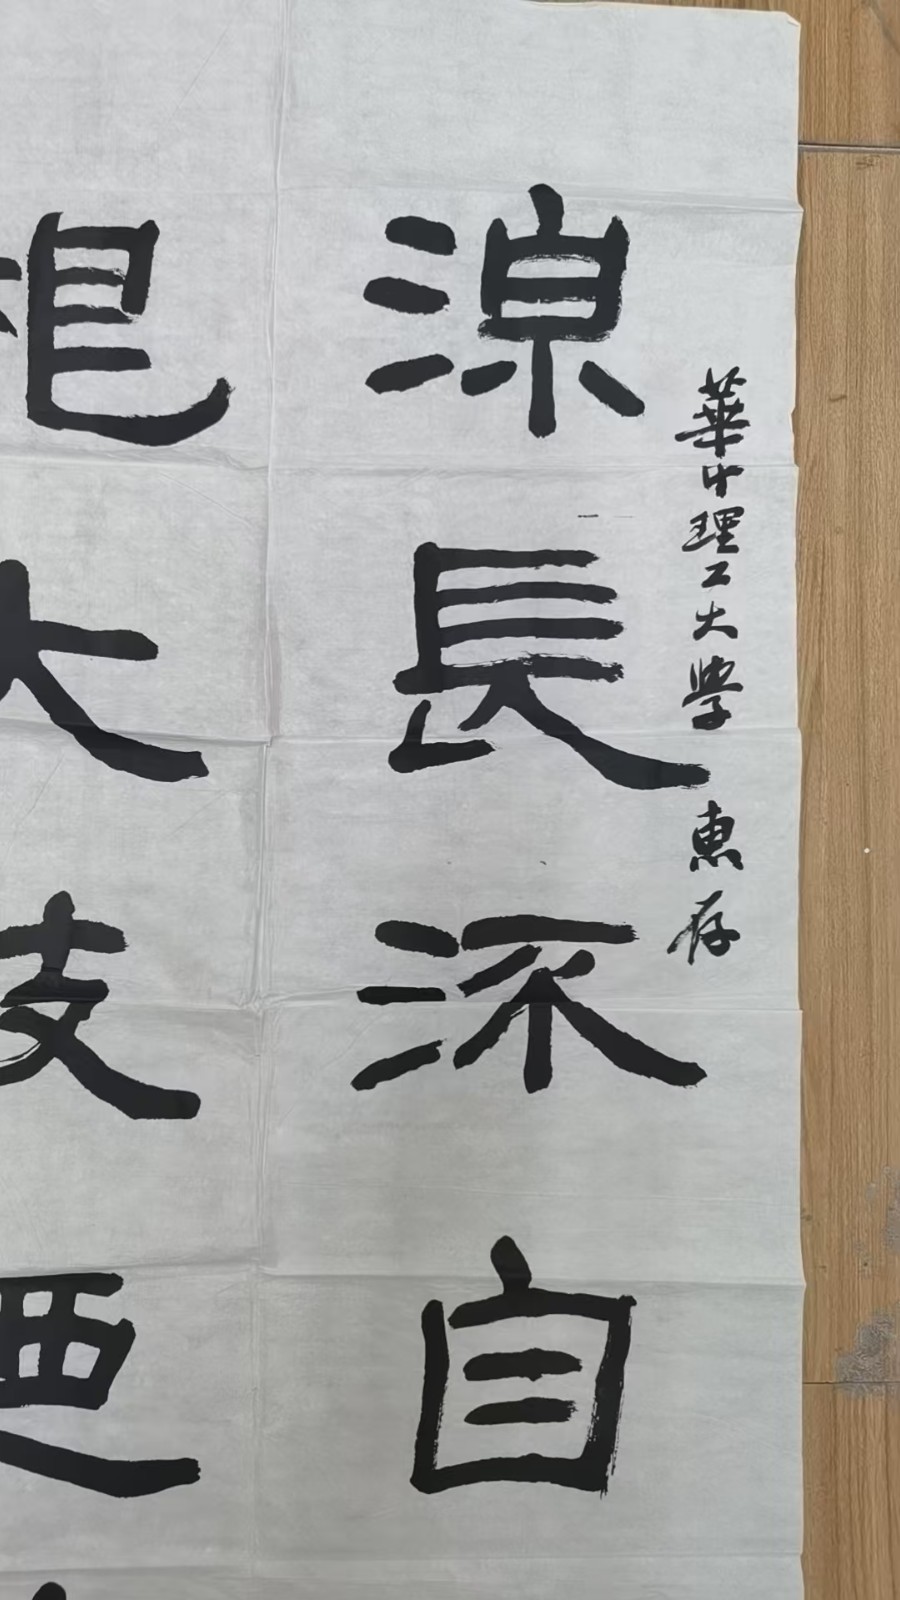 華中理工大學 惠存
源長流自
根大枝迺